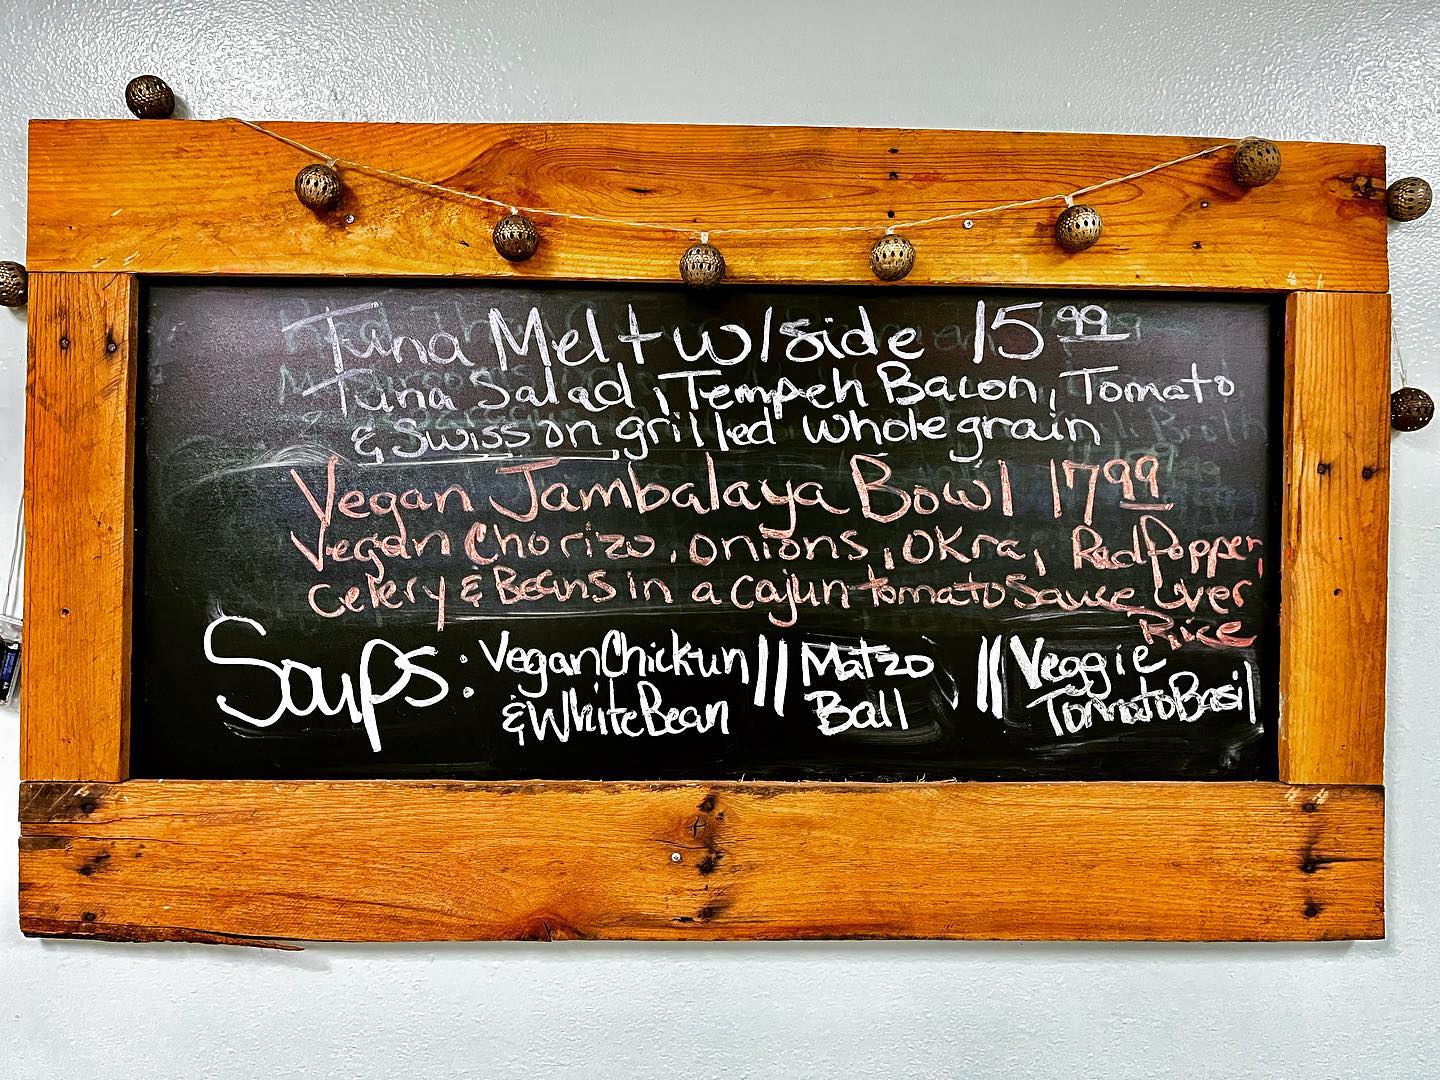 Tuna Melt w/side 15 99
Tuna Salad, Tempeh Bacon, Tomato
& Swiss on grilled whole grain
Vegan Jambalaya Bowl 17 99
Vegan Chorizo, onions, Okra, Red Popper,
Celery & Beans in a Cajun tomato Sauce over
Rice
Soups: Vegan Chick'un || Matzo || Veggie
& White Bean Ball Tomato Basil